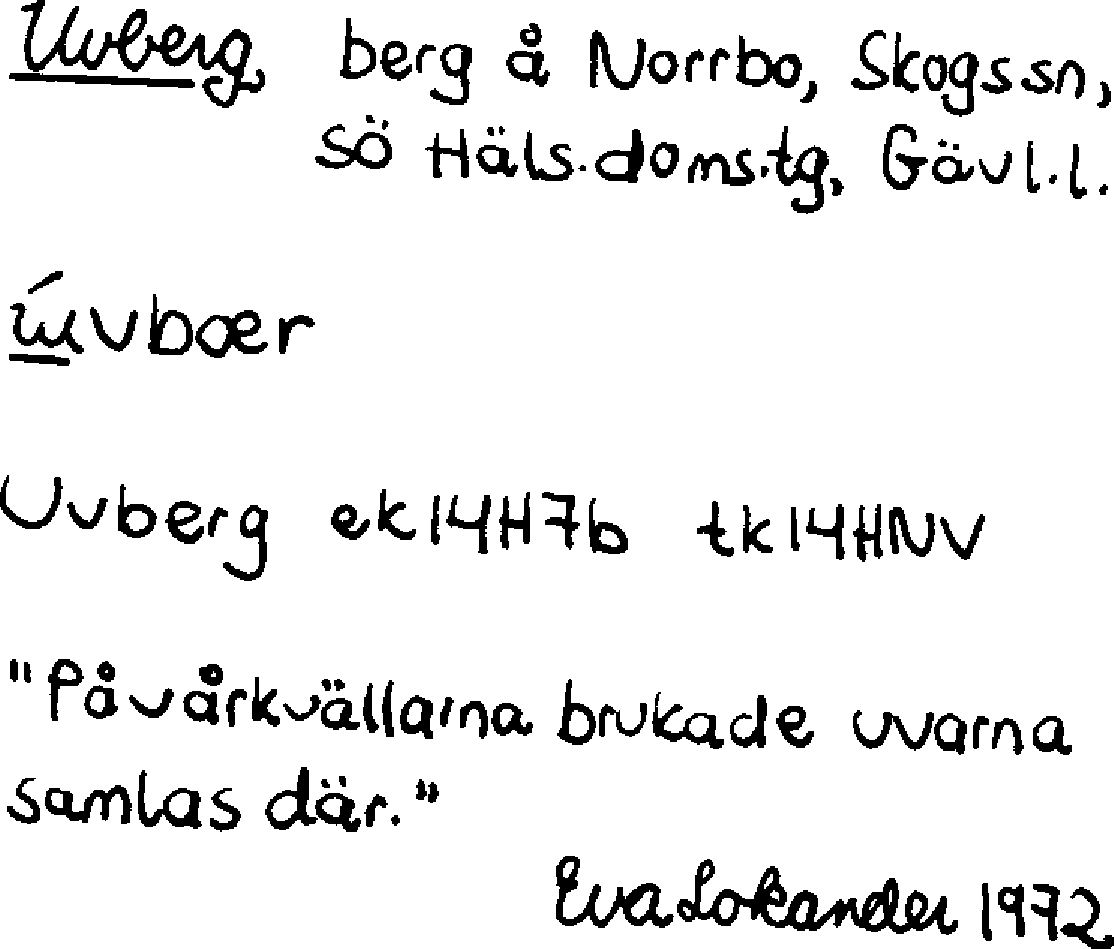 Uvberg, berg å Norrbo, Skogssn,
sö Häls.doms.tg, Gävl.l.
úvbær
Uvberg ek14H7b tk14HNV
"På vårkvällarna brukade uvarna
samlas där."
Eva Lokander 1972